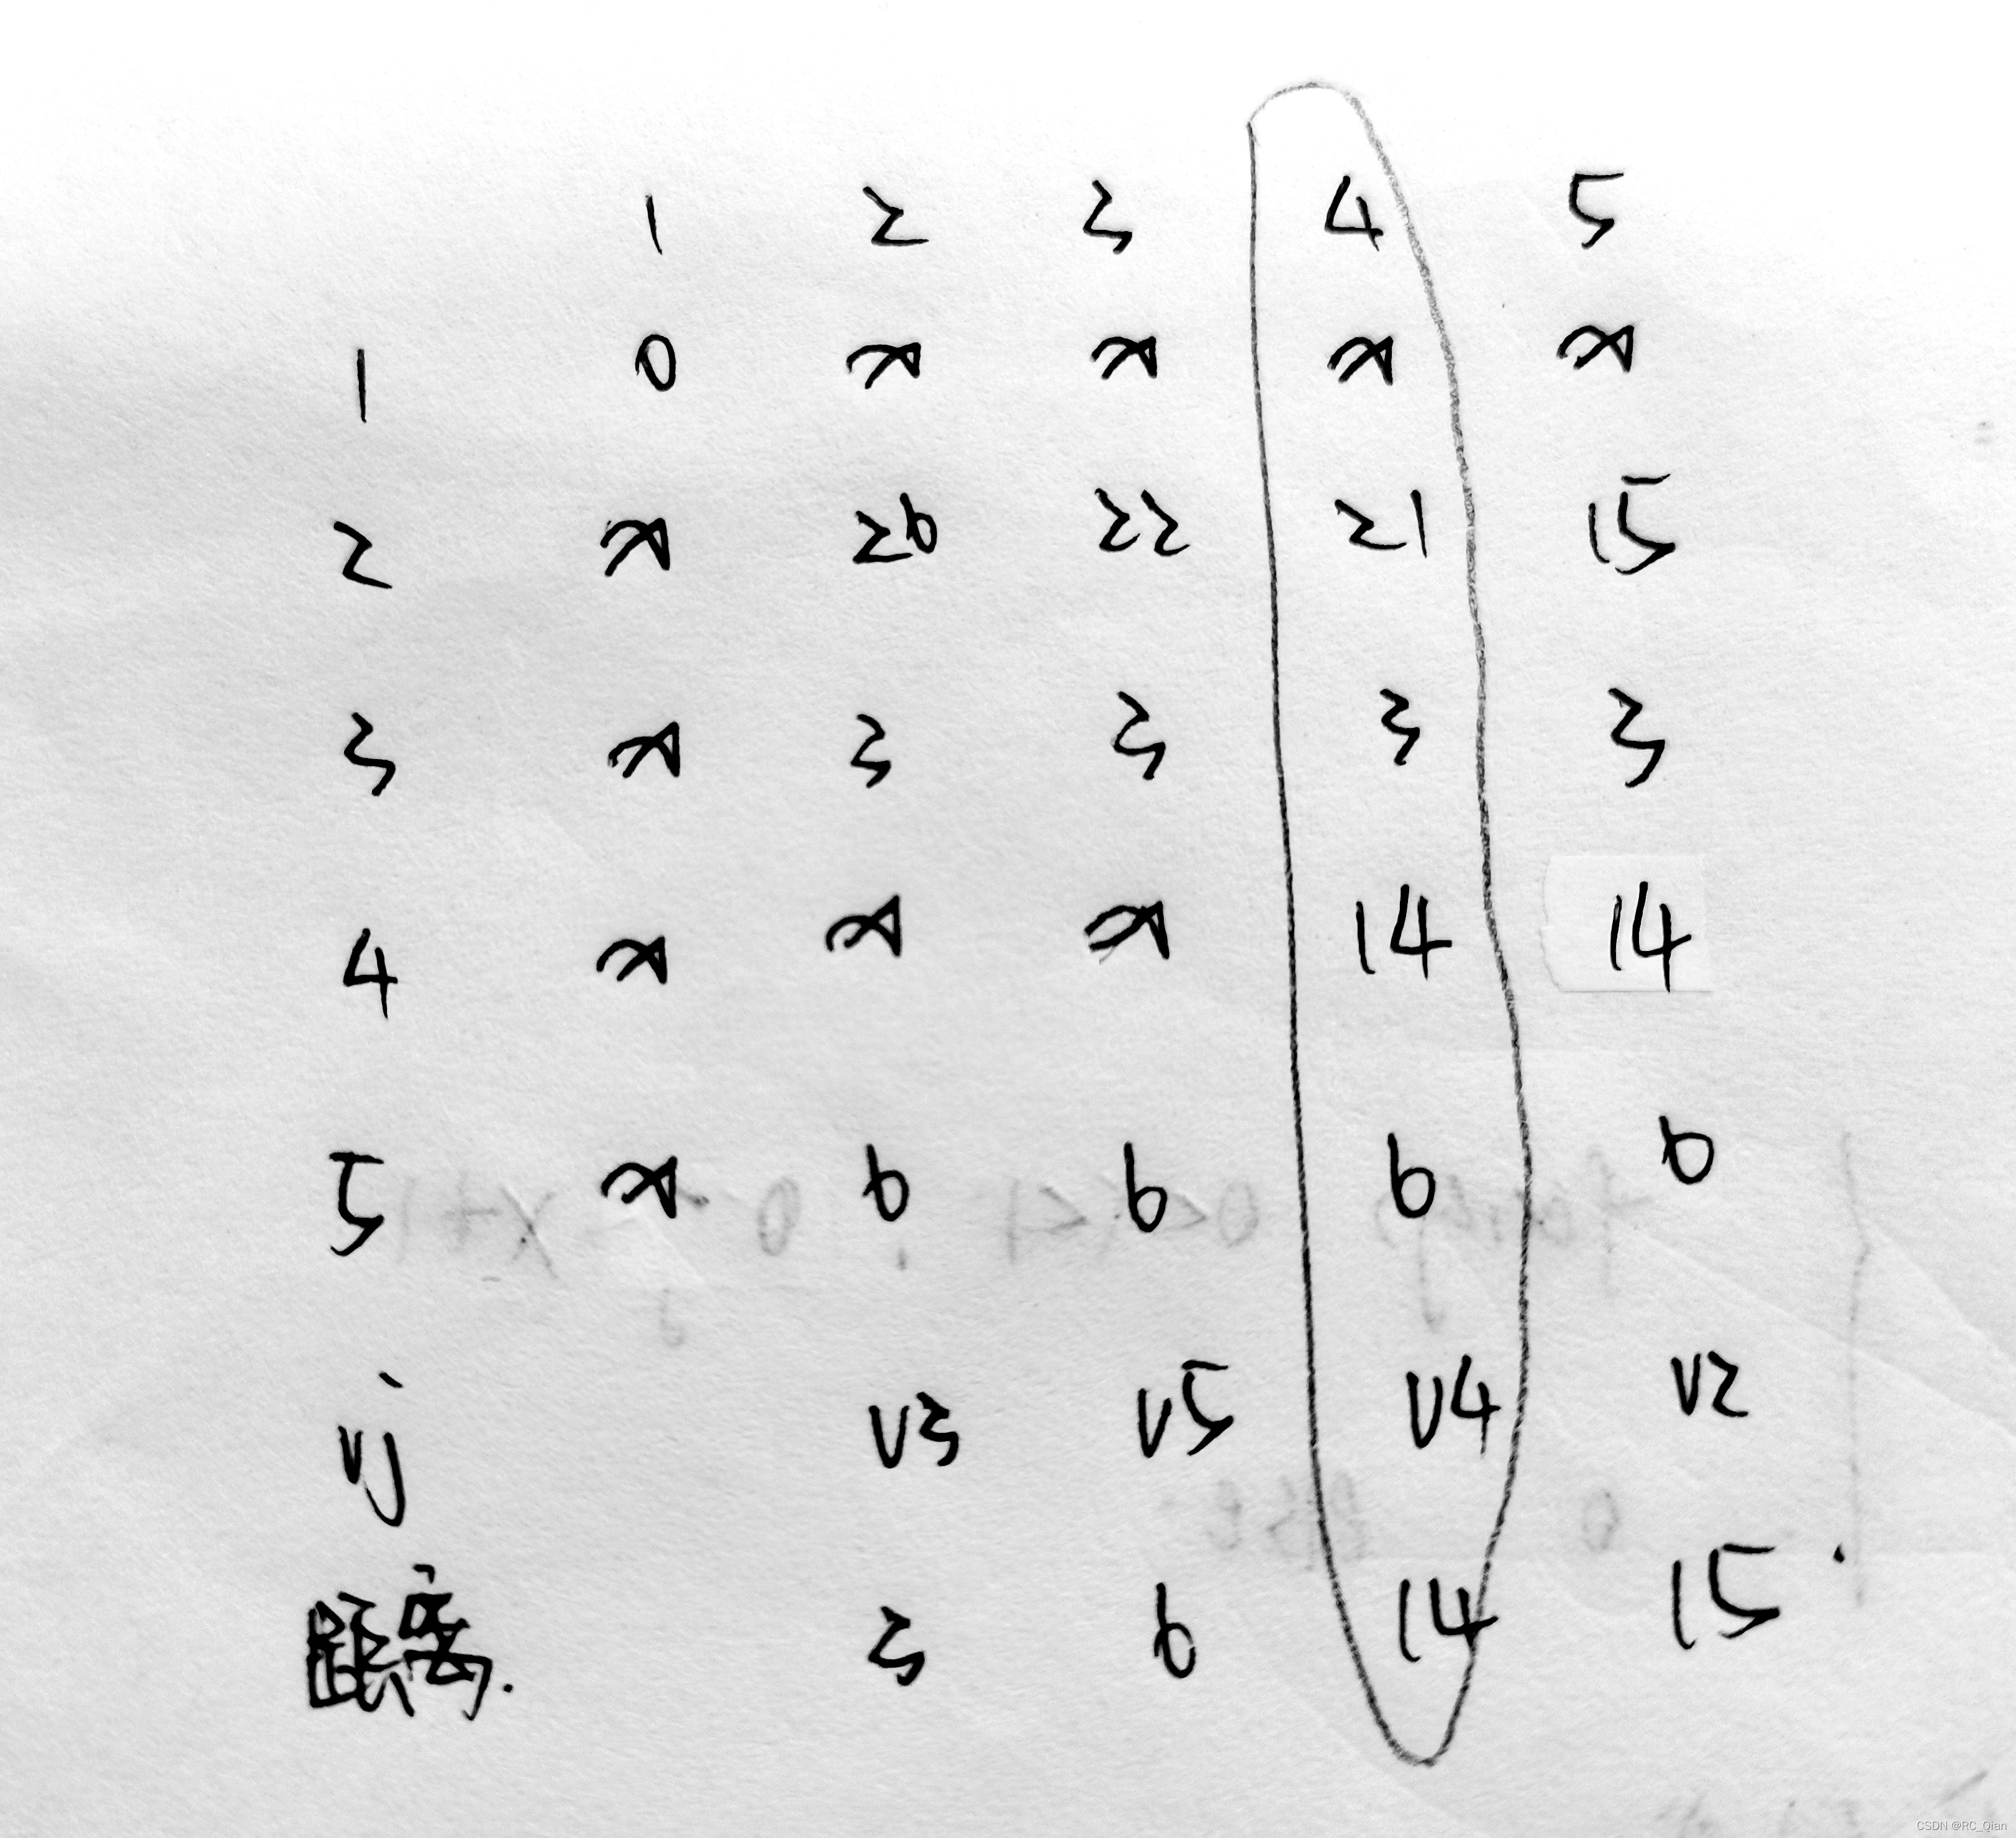 1 2 3 4 5
1 0 ∞ ∞ ∞ ∞
2 ∞ 26 22 21 15
3 ∞ 3 3 3 3
4 ∞ ∞ ∞ 14 14
5 ∞ 6 6 6 6
vj v3 v5 v4 v2
距离. 3 6 14 15
CSDN @RC_Qian